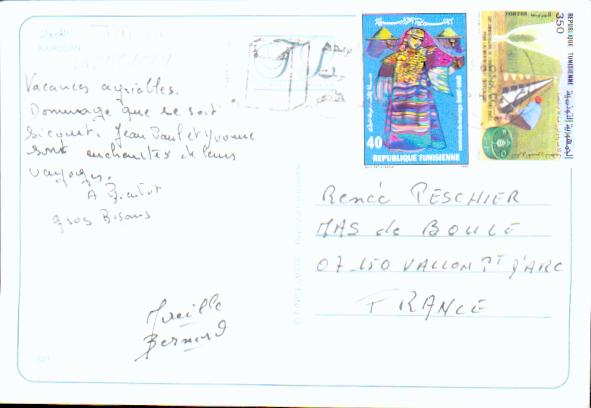 القيروان
KAIROUAN
Vacances agréables.
Dommage que ce soit
si court. Jean Paul et Yvonne
sont enchantés de leurs
voyages.
A Bientôt
gros Bisous
Mireille
Bernard
40
REPUBLIQUE TUNISIENNE
REPUBLIQUE TUNISIENNE
350
الجمهورية التونسية
Renée PESCHIER
MAS de BOULE
07-150 VALLON Pt D'ARC
FRANCE